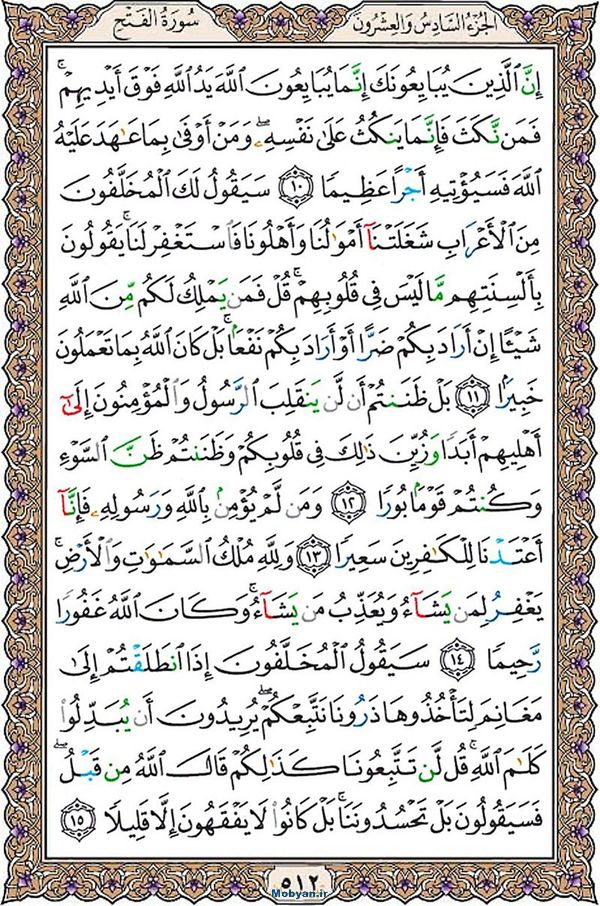 الجزء السادس والعشرون
سورة الفتح
إِنَّ ٱلَّذِينَ يُبَايِعُونَكَ إِنَّمَا يُبَايِعُونَ ٱللَّهَ يَدُ ٱللَّهِ فَوْقَ أَيْدِيهِمْ ۚ
فَمَن نَّكَثَ فَإِنَّمَا يَنكُثُ عَلَىٰ نَفْسِهِۦ ۖ وَمَنْ أَوْفَىٰ بِمَا عَـٰهَدَ عَلَيْهُ
ٱللَّهَ فَسَيُؤْتِيهِ أَجْرًا عَظِيمًا ﴿١٠﴾ سَيَقُولُ لَكَ ٱلْمُخَلَّفُونَ
مِنَ ٱلْأَعْرَابِ شَغَلَتْنَآ أَمْوَٰلُنَا وَأَهْلُونَا فَٱسْتَغْفِرْ لَنَا ۚ يَقُولُونَ
بِأَلْسِنَتِهِم مَّا لَيْسَ فِى قُلُوبِهِمْ ۚ قُلْ فَمَن يَمْلِكُ لَكُم مِّنَ ٱللَّهِ
شَيْـًٔا إِنْ أَرَادَ بِكُمْ ضَرًّا أَوْ أَرَادَ بِكُمْ نَفْعًۢا ۚ بَلْ كَانَ ٱللَّهُ بِمَا تَعْمَلُونَ
خَبِيرًۢا ﴿١١﴾ بَلْ ظَنَنتُمْ أَن لَّن يَنقَلِبَ ٱلرَّسُولُ وَٱلْمُؤْمِنُونَ إِلَىٰٓ
أَهْلِيهِمْ أَبَدًا وَزُيِّنَ ذَٰلِكَ فِى قُلُوبِكُمْ وَظَنَنتُمْ ظَنَّ ٱلسَّوْءِ
وَكُنتُمْ قَوْمًۢا بُورًا ﴿١٢﴾ وَمَن لَّمْ يُؤْمِنۢ بِٱللَّهِ وَرَسُولِهِۦ فَإِنَّآ
أَعْتَدْنَا لِلْكَـٰفِرِينَ سَعِيرًا ﴿١٣﴾ وَلِلَّهِ مُلْكُ ٱلسَّمَـٰوَٰتِ وَٱلْأَرْضِ ۚ
يَغْفِرُ لِمَن يَشَآءُ وَيُعَذِّبُ مَن يَشَآءُ ۚ وَكَانَ ٱللَّهُ غَفُورًا
رَّحِيمًا ﴿١٤﴾ سَيَقُولُ ٱلْمُخَلَّفُونَ إِذَا ٱنطَلَقْتُمْ إِلَىٰ
مَغَانِمَ لِتَأْخُذُوهَا ذَرُونَا نَتَّبِعْكُمْ ۖ يُرِيدُونَ أَن يُبَدِّلُوا۟
كَلَـٰمَ ٱللَّهِ ۚ قُل لَّن تَتَّبِعُونَا كَذَٰلِكُمْ قَالَ ٱللَّهُ مِن قَبْلُ ۖ
فَسَيَقُولُونَ بَلْ تَحْسُدُونَنَا ۚ بَلْ كَانُوا۟ لَا يَفْقَهُونَ إِلَّا قَلِيلًا ﴿١٥﴾
٥١٢
Mobyan.ir